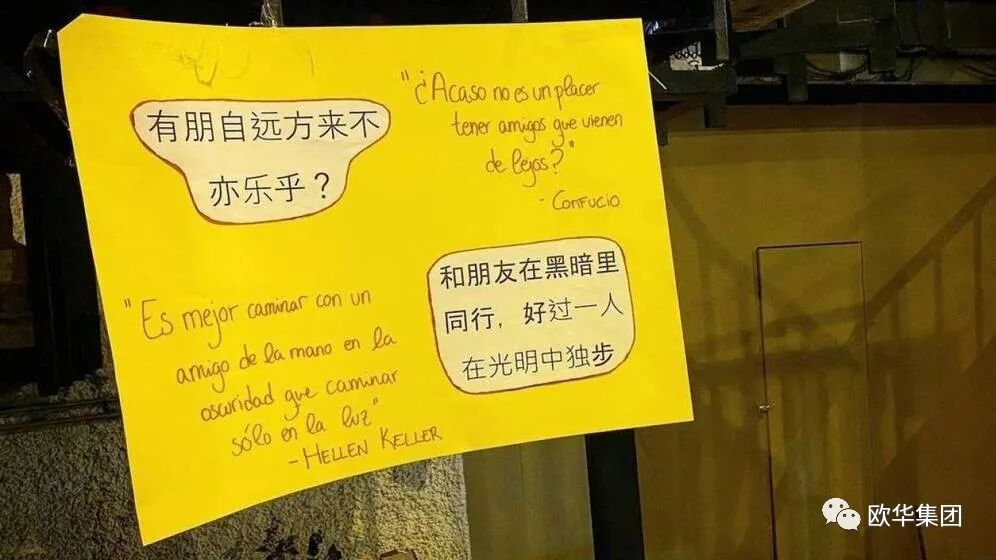 有朋自远方来不
亦乐乎？
"¿Acaso no es un placer
tener amigos que vienen
de lejos?"
- CONFUCIO
和朋友在黑暗里
同行，好过一人
在光明中独步
"Es mejor caminar con un
amigo de la mano en la
oscuridad que caminar
sólo en la luz"
- HELLEN KELLER
欧华集团